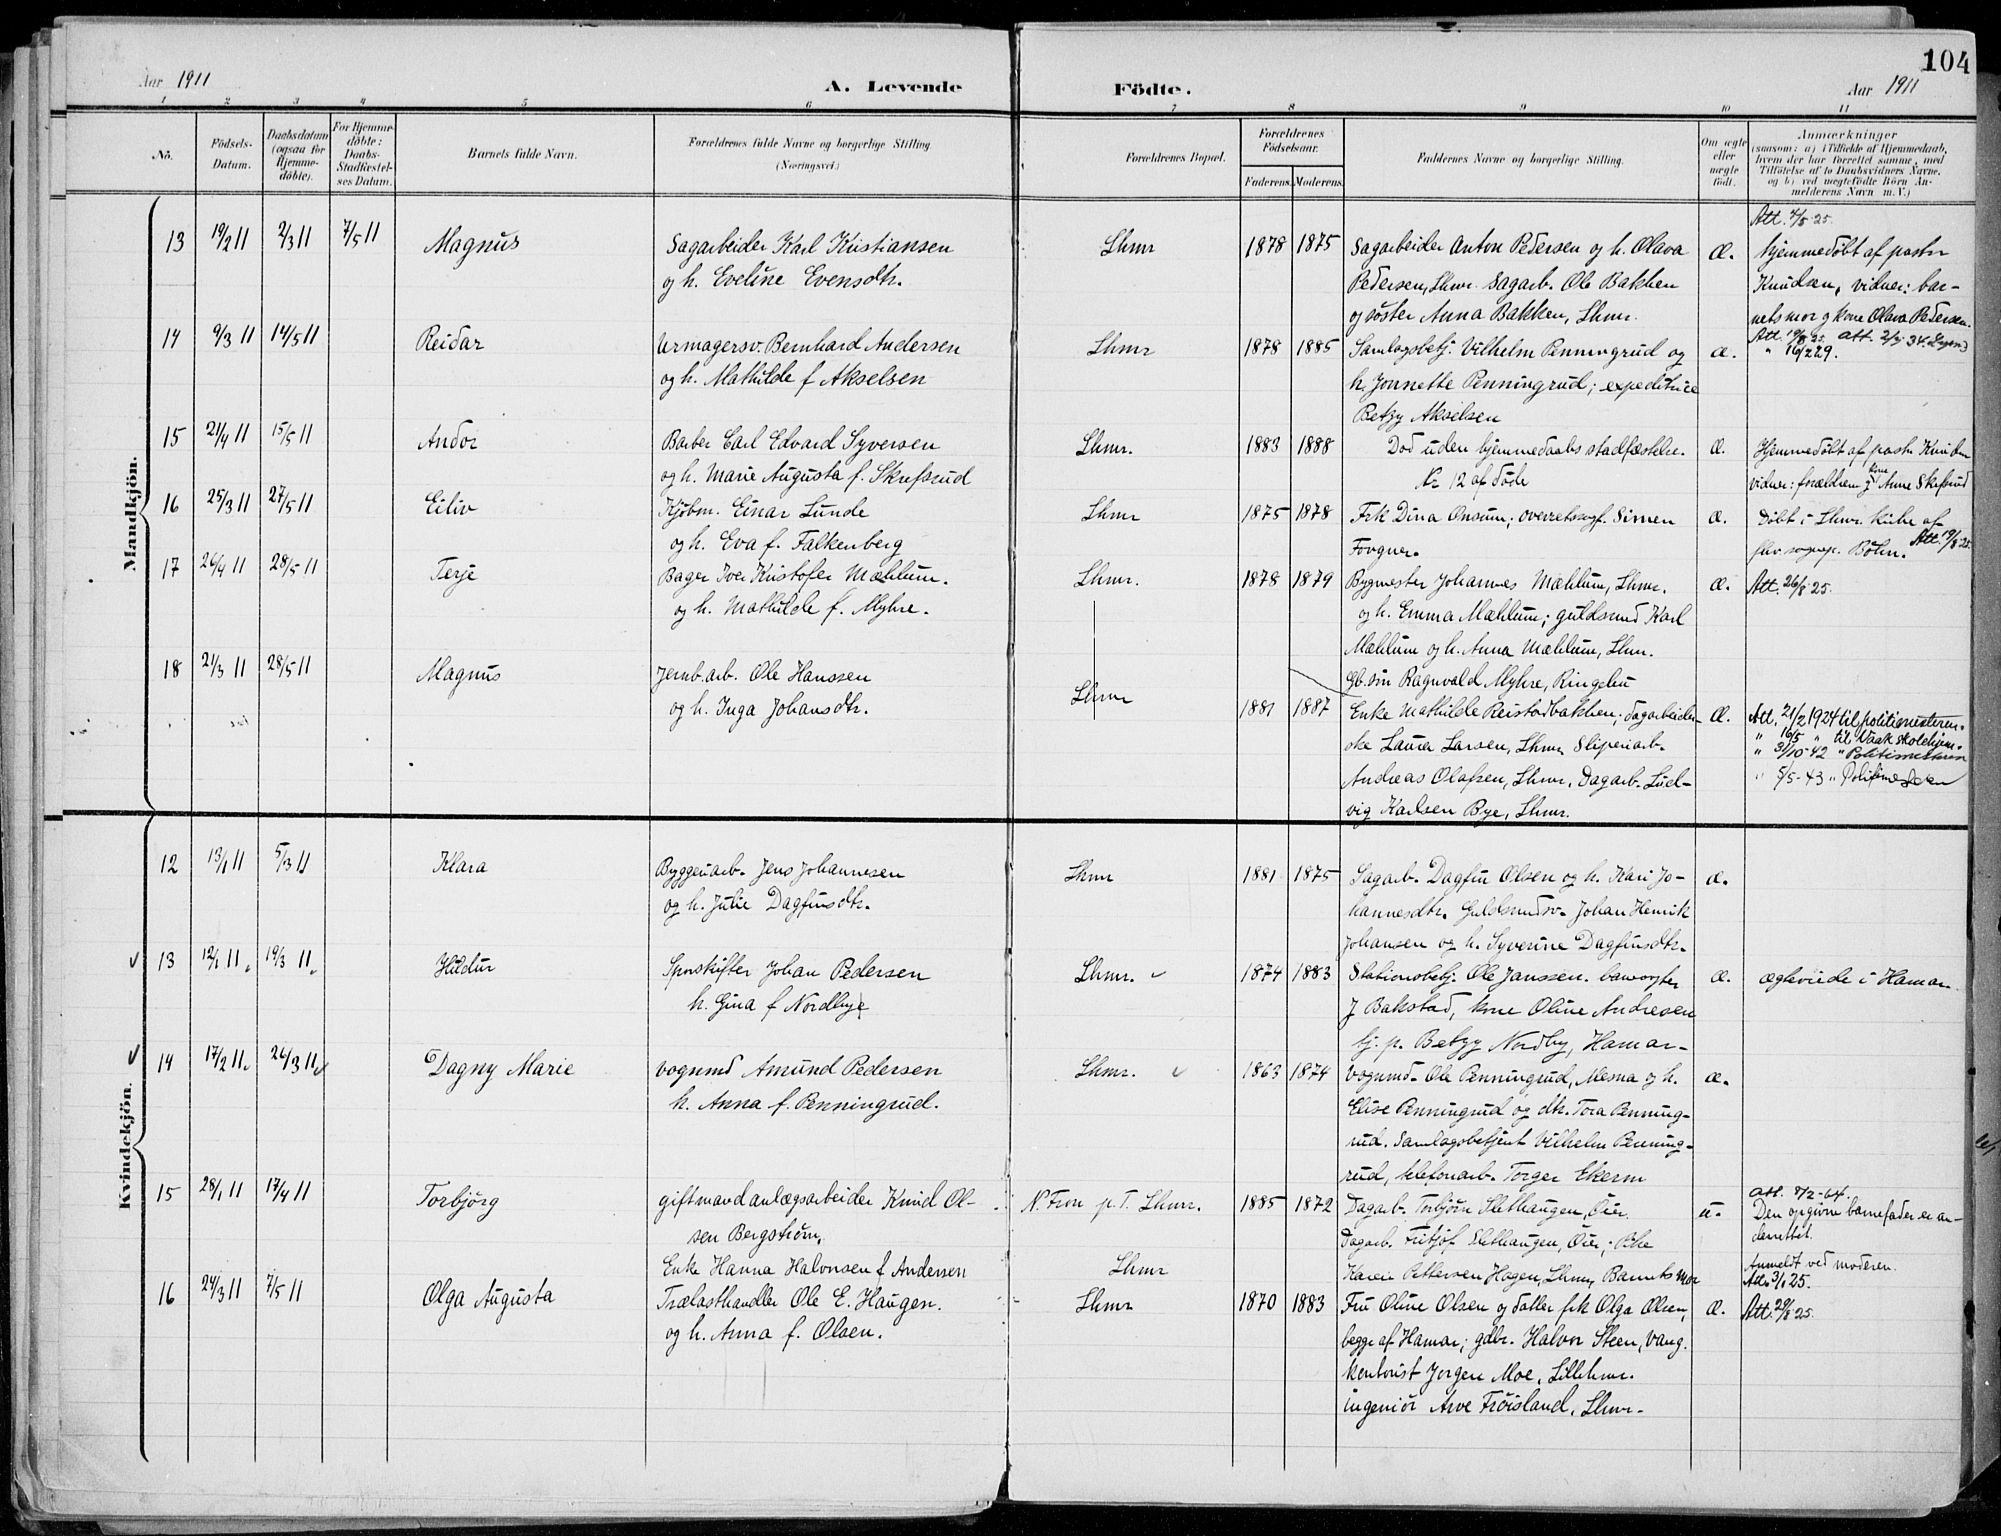 104
Aar 1911
A. Levende
Födte.
Aar 1911
1 2 3 4 5 6 7 8 9 10 11
No.
Födsels-Datum.
Daabsdatum (ogsaa for Hjemme-döbte).
For Hjemme-döbte: Daabs-Stadfæstel-ses Datum.
Barnets fulde Navn.
Forældrenes fulde Navne og borgerlige Stilling
(Næringsvei.)
Forældrenes Bopæl.
Forældrenes Födselsaar.
Faderens. Moderens.
Faddernes Navne og borgerlige Stilling.
Om ægte eller uægte födt.
Anmærkninger
(saasom: a) i Tilfælde af Hjemmedaab,
hvem der har forrettet samme, med
Tilföielse af to Daabsvidners Navne,
og b) ved uægtefödte Börn An-
melderens Navn m. V.)
Mandkjön.
Att. 4/5 25.
13 19/2 11 2/3 11 7/5 11 Magnus Sagarbeider Karl Kristiansen Lhmr 1878 1875 Sagarbeider Anton Pedersen og h. Olava æ. Hjemmedøbt af pastor
og h. Eveline Evensdtr. Pedersen, Lhmr. Sagarb. Ole Bakken Knudsen, vidner: bar-
og søster Anna Bakken, Lhmr. nets mor og kone Olava Pedersen.
14 9/3 11 14/5 11 Reidar Urmagersv. Bernhard Andersen Lhmr 1878 1885 Samlagsbetj. Vilhelm Penningrud og æ. Att. 19/8 25. att. 2/5 34.
" 16/2 29.
og h. Mathilde f Akselsen h. Jonnette Penningrud; expeditrice
Betzy Akselsen
15 21/4 11 15/5 11 Andor Barber Carl Edvard Syversen Lhmr. 1883 1888 Død uden hjemmedaabs stadfæstelse. æ. Hjemmedøbt af pastor Knudsen
og h. Marie Augusta f. Skrefsrud Nr 12 af døde vidner: forældren og kone Anne Skrefsrud
16 25/3 11 27/5 11 Eiliv Kjøbm. Einar Lunde Lhmr 1875 1878 Frk Dina Onsum; overretssagf. Simen æ. Døbt i Lhmr. kirke af
og h. Eva f. Falkenberg Fougner. sognep. Bøhn. Att. 19/8 25.
17 26/4 11 28/5 11 Terje Bager Iver Kristofer Mæhlum. Lhmr. 1878 1879 Bygmester Johannes Mæhlum, Lhmr. æ. Att. 26/8 25.
og h. Mathilde f. Myhre. og h. Emma Mæhlum; guldsmed Karl
Mæhlum og h. Anna Mæhlum, Lhmr.
Ragnvald Myhre, Ringebu
18 21/3 11 28/5 11 Magnus Jernb.arb. Ole Hanssen Lhmr 1881 1887 Enke Mathilde Reistadbakken; dagarbeider- æ. Att. 21/2 1924 til politimesteren.
og h. Inga Johansdtr. ske Laura Larsen, Lhmr. Sliperiarb. " 16/5 " til Vaak skolehjem.
" 31/10-42 " Politimesteren
Andreas Olafsen, Lhmr. Dagarb. Lud- " 5/5-43 " Politimesteren
vig Karlsen Bye, Lhmr.
Kvindekjön.
12 13/1 11 5/3 11 Klara Byggeriarb. Jens Johannesen Lhmr 1881 1875 Sagarb. Dagfin Olsen og h. Kari Jo- æ.
og h. Julie Dagfinsdtr. hannesdtr. Guldsmedsv. Johan Henrik
Johansen og h. Syverine Dagfinsdtr.
13 12/1 11 19/3 11 Hildur Sporskifter Johan Pedersen Lhmr. 1874 1883 Stationsbetj. Ole Janssen. banevogter æ. ægteviede i Hamar
h. Gina f Nordbye J Bakstad, kone Oline Andresen
tj. p. Betzy Nordby, Hamar-
14 17/2 11 26/3 11 Dagny Marie vognmd Amund Pedersen Lhmr. 1863 1874 Vognmd. Ole Penningrud, Mesna og h. æ.
h. Anna f. Penningrud. Elise Penningrud og dtr. Tora Penning-
rud. Samlagsbetjent Vilhelm Penning-
rud, telefonarb. Torger Ekern
15 28/1 11 17/4 11 Torbjørg gift mand anlægsarbeider Knud Ol- N. Fron p.T. Lhmr. 1885 1872 Dagarb. Torbjørn Slethaugen, Øier. u. att. 7/2-64.
Den opgivne barnefader er an-
sen Bergstrøm. Dagarb. Fritjof Slethaugen, Øier; Pike derrettet.
Enke Hanna Halvorsen f Andersen Lhmr Karen Pettersen Hagen, Lhmr, Barnets Mor Anmeldt ved moderen.
Att. 3/1 25.
16 24/3 11 7/5 11 Olga Augusta Trælasthandler Ole E. Haugen. Lhmr 1870 1883 Fru Oline Olsen og datter frk Olga Olsen, æ. Att. 29/8 25.
og h. Anna f. Olsen. begge af Hamar; gdbr. Halvor Steen, Vang.
kontorist Jørgen Moe, Lillehmr.
ingeniør Arve Frøisland, Lhmr.